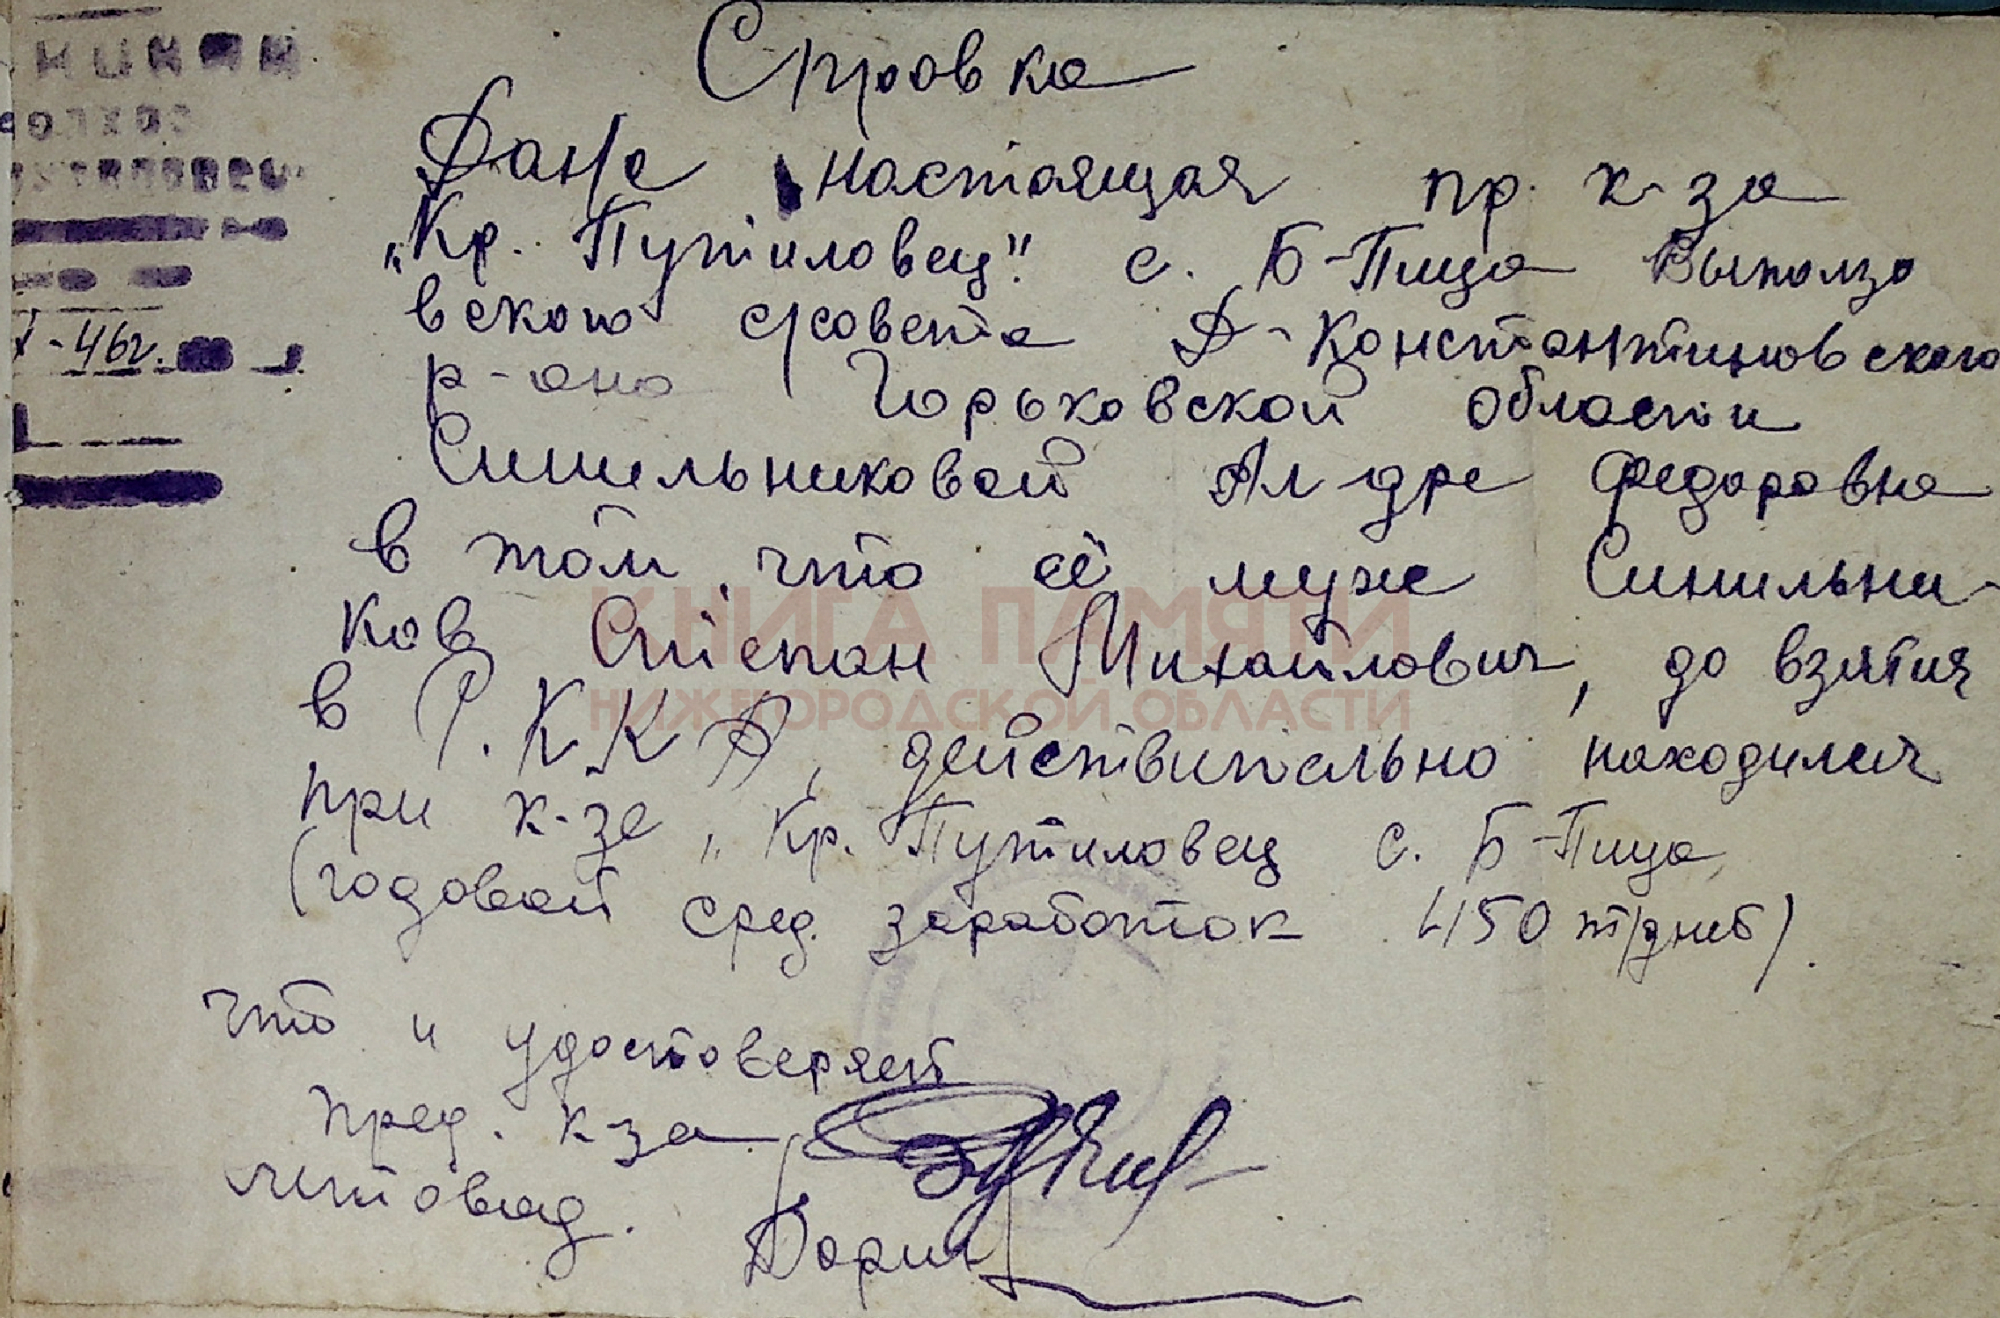 Справка
Дана настоящая пр. к-за
„Кр. Путиловец" с. Б-Пица Выползо
вского с/совета Д-Константиновского
р-она Горьковской области
Синильниковой Ал-дре Федоровне
в том, что её муж Синильни-
ков Степан Михайлович, до взятия
в Р.К.К.А, действительно находился
при к-зе „Кр. Путиловец с. Б-Пица,
(годовой сред. заработок 450 т/дней).
что и удостоверяет
Пред. к-за
счетовод.
-46г.
КНИГА ПАМЯТИ
НИЖЕГОРОДСКОЙ ОБЛАСТИ